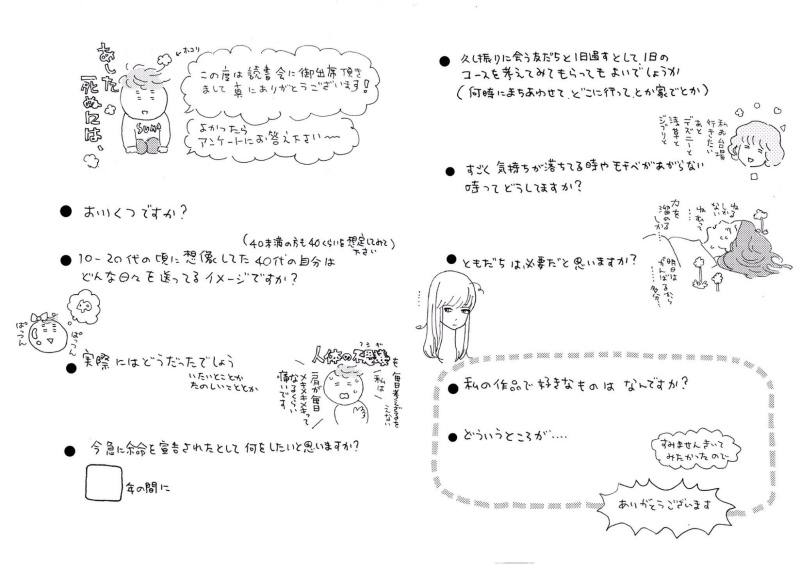 あした
死ぬには、
ホコリ
この度は読書会に御出席頂き
まして真にありがとうございます!
よかったら
アンケートにお答え下さい〜
SUMI
● おいくつですか?
(40才满の方も40くらいを想定してみて
下さい)
● 10-20代の頃に想像した40代の自分は
どんな日々を送ってるイメージですか?
ぱっつん
ぱっつん
● 実際にはどうだったでしょう
いたいとことか
たのしいこととか
人体の不思議を
フシギ
毎日考えざるをえない
私は
肩が毎日
メキメキメキって
なるくらい
痛いです。
● 今急に余命を宣告されたとして何をしたいと思いますか?
年の間に
● 久し振りに会う友だちと1日過すとして、1日の
コースを考えてみてもらってもよいでしょうか
(何時にまちあわせて、どこに行って、とか家でとか)
私お台場
行きたい
あと
ディズニーと
浅草と
ジブリと
● すごく気持ちが落ちてる時やモチベがあがらない
時ってどうしてますか?
ねる
しか
ない
ねむって
……
力を
溜めるしか…
明日は
がんばるから
……多分…
● ともだちは、必要だと思いますか?
● 私の作品で好きなものはなんですか?
● どういうところが….
すみませんきいて
みたかったので
ありがとうございます